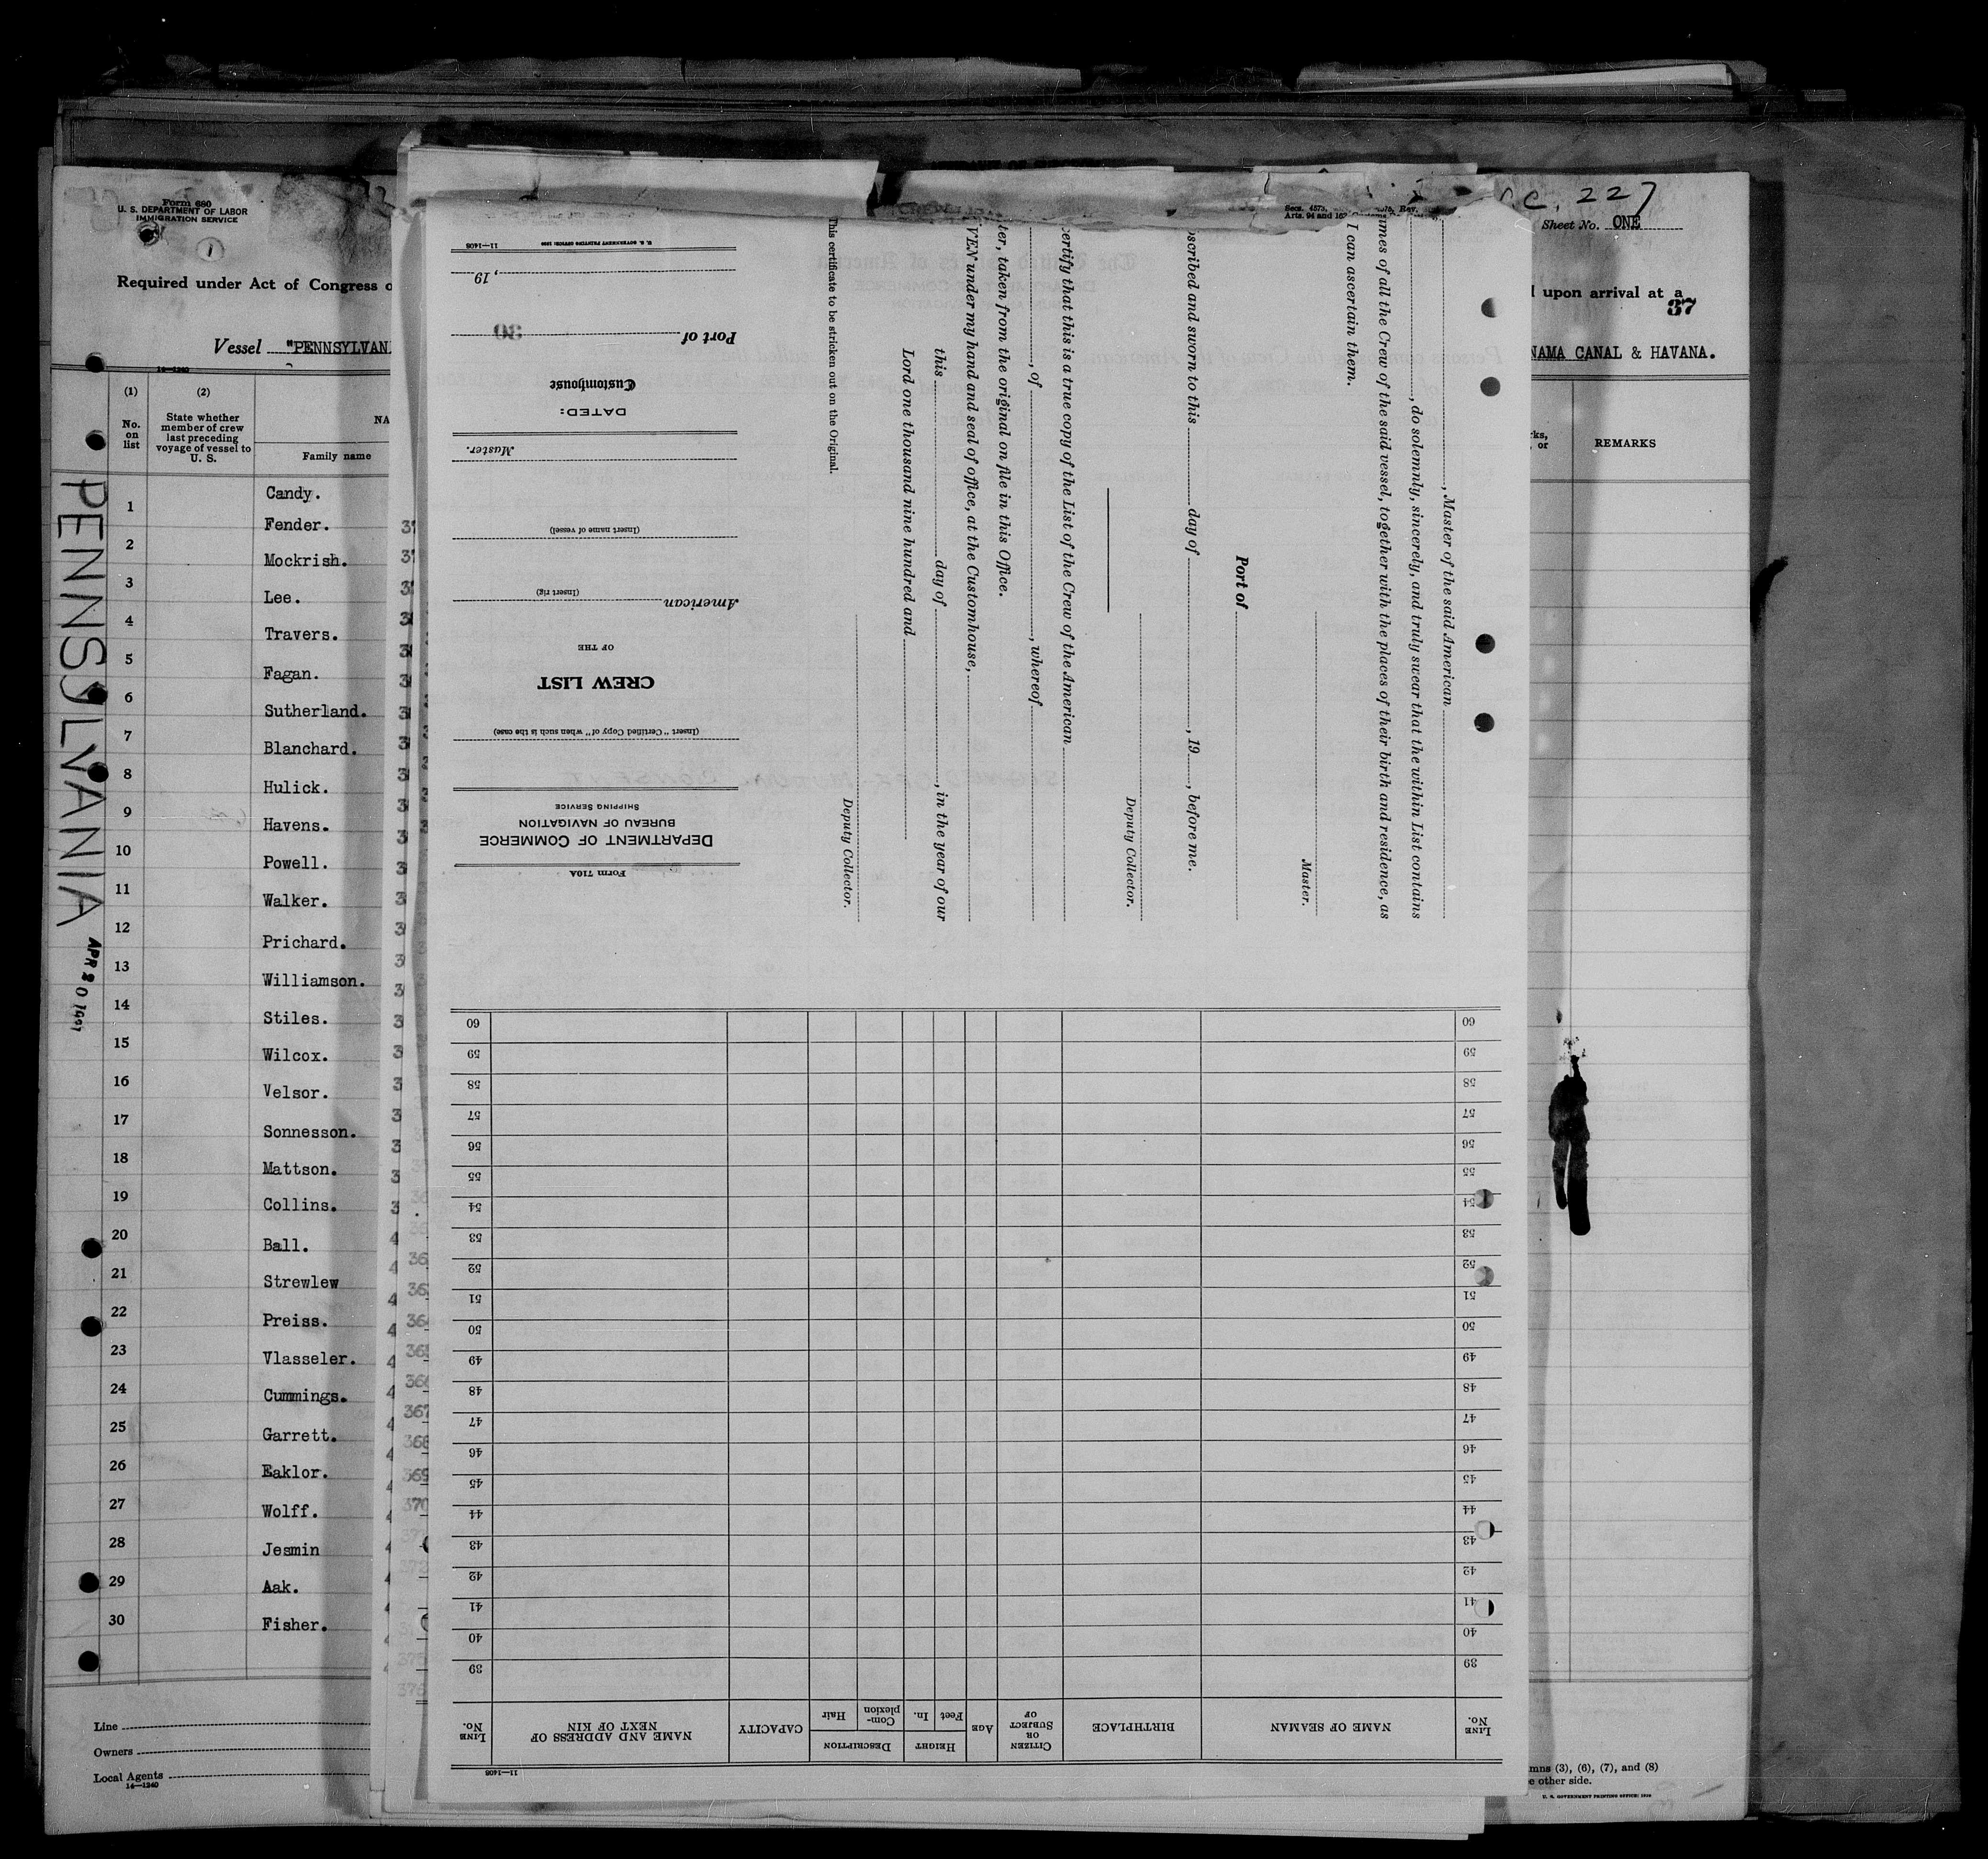 Form 680
U. S. DEPARTMENT OF LABOR
IMMIGRATION SERVICE
1
Required under Act of Congress o
Vessel "PENNSYLVAN
14—1240
(1)
No.
on
list
(2)
State whether
member of crew
last preceding
voyage of vessel to
U. S.
NA
Family name
1 Candy.
2 Fender.
3 Mockrish.
4 Lee.
5 Travers.
6 Fagan.
7 Sutherland.
8 Blanchard.
9 Hulick.
10 Havens.
11 Powell.
12 Walker.
13 Prichard.
14 Williamson.
15 Stiles.
16 Wilcox.
17 Velsor.
18 Sonnesson.
19 Mattson.
20 Collins.
21 Ball.
22 Strewlew
23 Preiss.
24 Vlasseler.
25 Cummings.
26 Garrett.
27 Eaklor.
28 Wolff.
29 Jesmin
30 Aak.
Fisher.
Line
Owners
Local Agents
14—1240
PENNSYLVANIA
APR 20
367
368
369
370
Form 710A
DEPARTMENT OF COMMERCE
BUREAU OF NAVIGATION
SHIPPING SERVICE
(Insert "Certified Copy of" when such is the case)
CREW LIST
OF THE
American
(Insert rig)
(Insert name of vessel)
Master.
DATED:
Customhouse
Port of
30
, 19
U. S. GOVERNMENT PRINTING OFFICE: 1930
11—1408
, Master of the said American
, do solemnly, sincerely, and truly swear that the within List contains
ames of all the Crew of the said vessel, together with the places of their birth and residence, as
I can ascertain them.
Master.
Port of
bscribed and sworn to this day of , 19 , before me.
Deputy Collector.
certify that this is a true copy of the List of the Crew of the American
, of , whereof
ter, taken from the original on file in this Office.
VEN under my hand and seal of office, at the Customhouse,
this day of , in the year of our
Lord one thousand nine hundred and
Deputy Collector.
This certificate to be stricken out on the Original.
Secs. 4573,
Arts. 94 and
Rev.
11—1408
LINE
No.
NAME OF SEAMAN
BIRTHPLACE
CITIZEN
OR
SUBJECT
OF
AGE
HEIGHT
Feet
In.
DESCRIPTION
Com-
plexion
Hair
CAPACITY
NAME AND ADDRESS OF
NEXT OF KIN
LINE
No.
39 39
40 40
41 41
42 42
43 43
44 44
45 45
46 46
47 47
48 48
49 49
50 50
51 51
52 52
53 53
54 54
55 55
56 56
57 57
58 58
59 59
60 60
227
Sheet No. ONE
upon arrival at a
37
NAMA CANAL & HAVANA.
rks,
or
REMARKS
mns (3), (6), (7), and (8)
e other side.
U. S. GOVERNMENT PRINTING OFFICE: